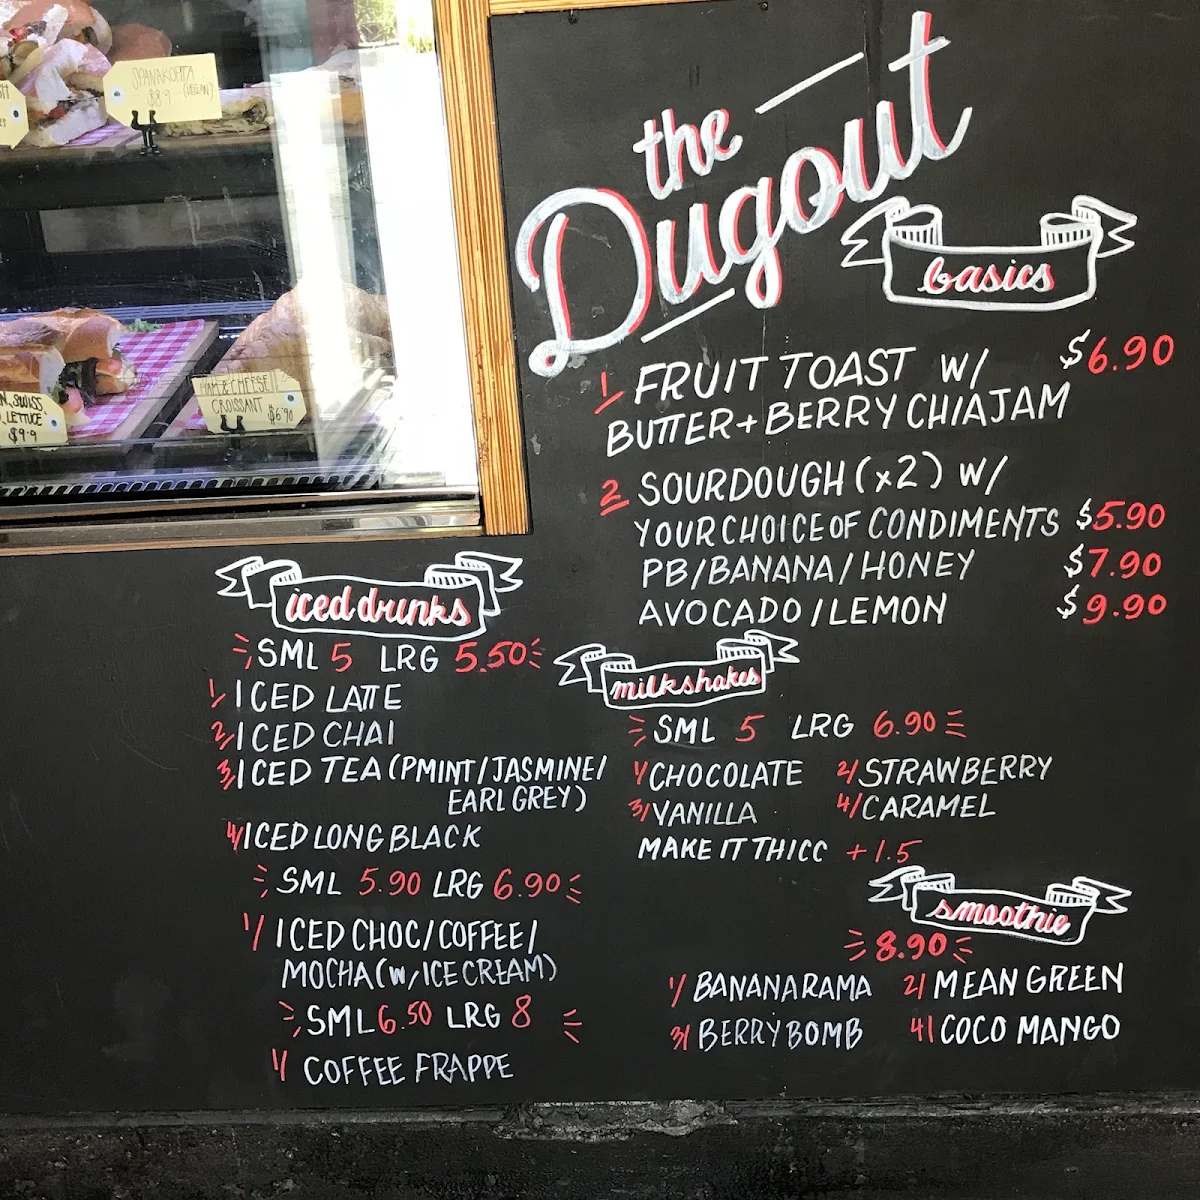 SPANAKOPITA
$8.9 (VEGAN)
SWISS
LETTUCE
$9.9
HAM & CHEESE
CROISSANT $6.90
the
Dugout
basics
1 FRUIT TOAST W/ $6.90
BUTTER + BERRY CHIA JAM
2 SOURDOUGH (x2) W/
YOUR CHOICE OF CONDIMENTS $5.90
PB/BANANA/HONEY $7.90
AVOCADO/LEMON $9.90
iced drinks
SML 5 LRG 5.50
1/ ICED LATTE
2/ ICED CHAI
3/ ICED TEA (PMINT/JASMINE/
EARL GREY)
4/ ICED LONG BLACK
SML 5.90 LRG 6.90
1/ ICED CHOC/COFFEE/
MOCHA (W/ ICE CREAM)
SML 6.50 LRG 8
1/ COFFEE FRAPPE
milkshakes
SML 5 LRG 6.90
1/ CHOCOLATE 2/ STRAWBERRY
3/ VANILLA 4/ CARAMEL
MAKE IT THICC +1.5
smoothie
8.90
1/ BANANARAMA 2/ MEAN GREEN
3/ BERRY BOMB 4/ COCO MANGO